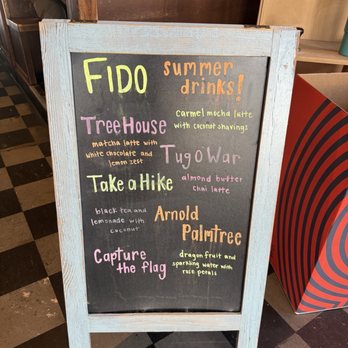 FIDO
summer
drinks!
carmel mocha latte
with coconut shavings
TreeHouse
matcha latte with
white chocolate and
lemon zest
Tug O' War
almond butter
chai latte
Take a Hike
black tea and
lemonade with
coconut
Arnold
Palmtree
Capture
the flag
dragon fruit and
sparkling water with
rose petals